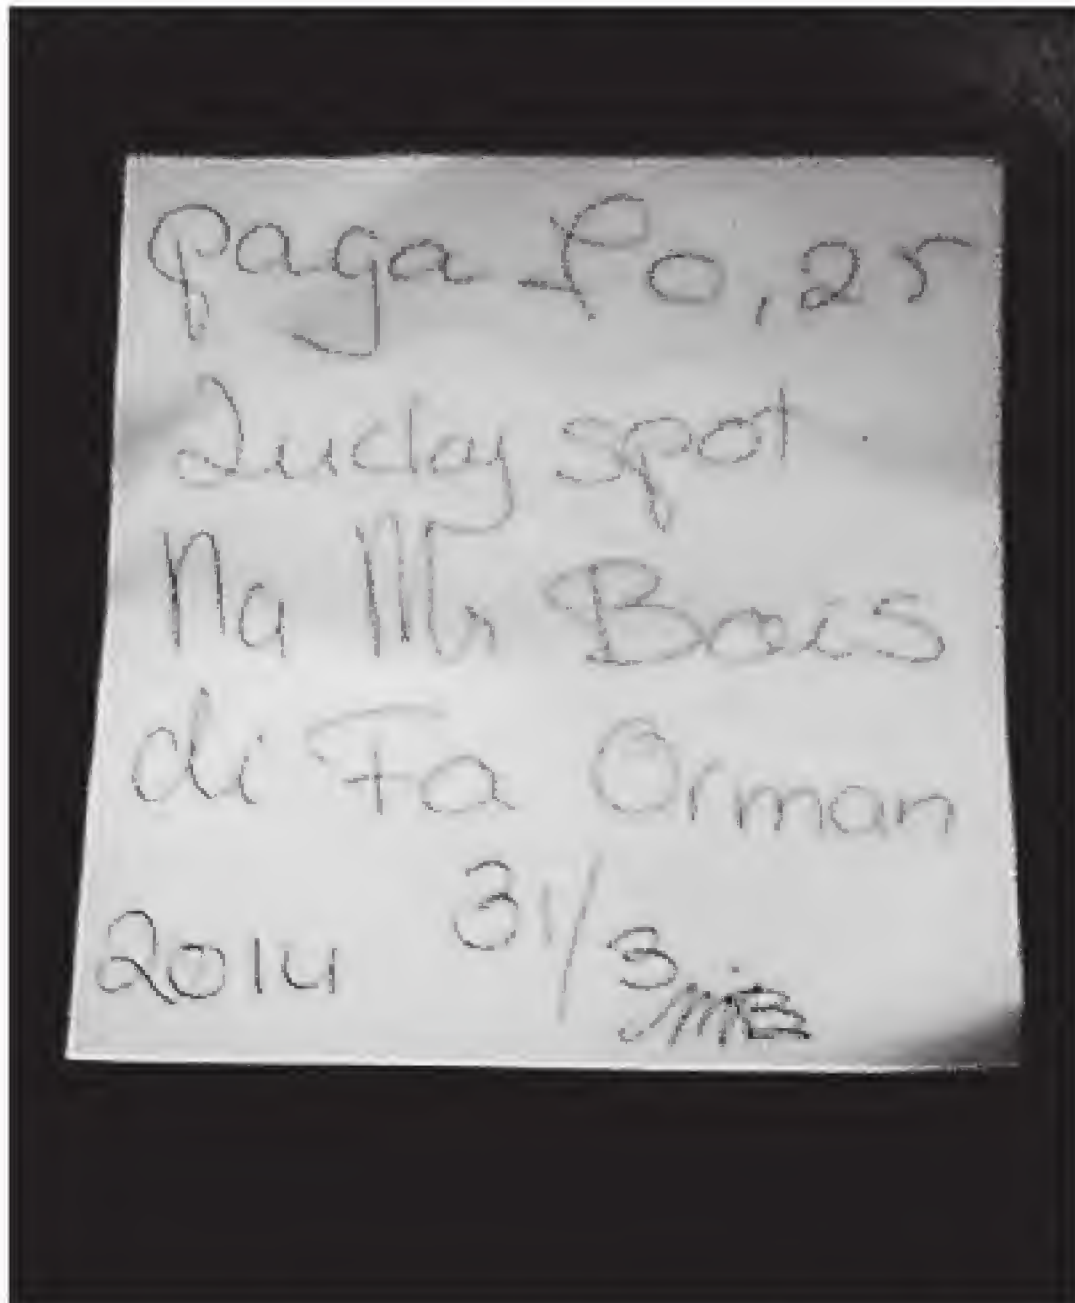 paga ƒ0,25
Lucky spot
Na Mr Bais
di Fa Orman
2014 31/3